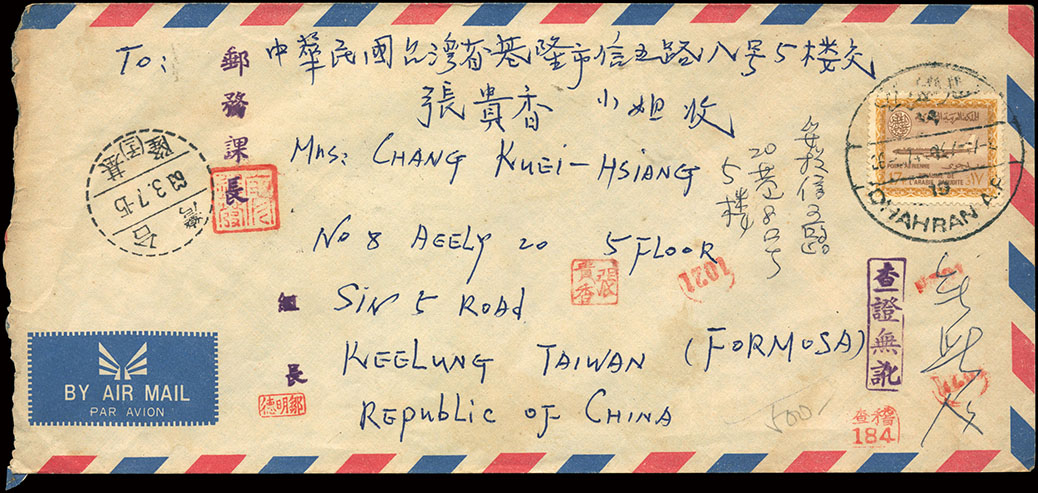 To:
中華民國台灣省基隆市信五路八号5楼交
張貴香 小姐收
Mrs: CHANG KUEI-HSIANG
No 8 AEELY 20 5 FLOOR
SIN 5 ROAD
KEELUNG TAIWAN (FORMOSA)
Republic OF CHINA
郵務課長
組長
鄒明德
張貴香
1021
20巷8号
5樓
查證無訛
稽查
184
500-
DHAHRAN
19
L'ARABIE
基隆
63.3.7.15
臺灣
BY AIR MAIL
PAR AVION